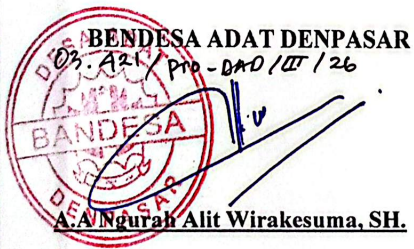 BENDESA ADAT DENPASAR
03. A21 / Pro-DAD / III / 26
DESA ADAT
BANDESA
DENPASAR
A.A Ngurah Alit Wirakesuma, SH.